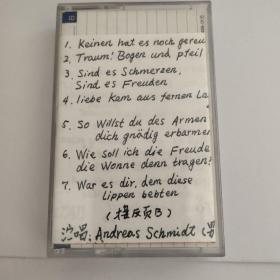 1. Keinen hat es noch gereu
2. Traum! Bogen und pfeil
3. Sind es Schmerzen,
Sind es Freuden
4. liebe kam aus fernen La
5. So Willst du des Armen
dich gnädig erbarme
6. Wie soll ich die Freude
die Wonne denn tragen?
7. War es dir, dem diese
lippen bebten
演唱: Andreas Schmidt